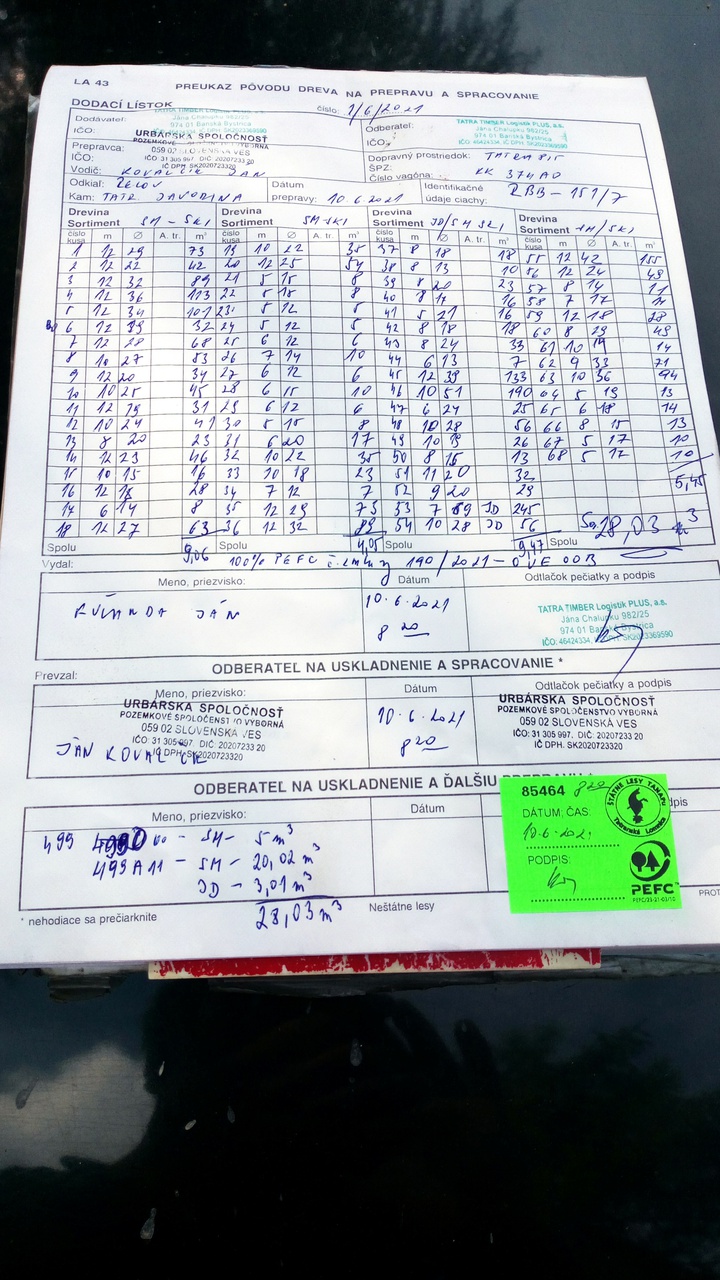 LA 43
PREUKAZ PÔVODU DREVA NA PREPRAVU A SPRACOVANIE
DODACÍ LÍSTOK
číslo: 1/6/2021
Dodávateľ:
Jána Chalupku 982/25
974 01 Banská Bystrica
IČO:
URBÁRSKA SPOLOČNOSŤ
Odberateľ:
TATRA TIMBER Logistik PLUS, a.s.
Jána Chalupku 982/25
974 01 Banská Bystrica
IČO:
Prepravca:
059 02 SLOVENSKÁ VES
IČO:
IČO: 31 305 997, DIČ: 2020723320
IČ DPH: SK2020723320
Vodič: KOVALČÍK JÁN
Dopravný prostriedok: TATRA 815
ŠPZ:
Číslo vagóna: KK 374AO
Odkiaľ:
Kam: TATR JAVORINA
Dátum
prepravy: 10 6 2021
Identifikačné
údaje ciachy: RBB-151/7
Drevina
Sortiment SM-SKI
Drevina
Sortiment SM-SKI
Drevina
Sortiment JD/SM SKI
Drevina
Sortiment SM/SKI
číslo kusa m Ø A. tr. m³ číslo kusa m Ø A. tr. m³ číslo kusa m Ø A. tr. m³ číslo kusa m Ø A. tr. m³
1 12 29 73 19 10 22 35 37 8 18 18 55 12 42 155
2 12 22 42 20 12 25 54 38 8 13 10 56 12 24 49
3 12 32 89 21 5 15 8 39 8 20 23 57 8 14 11
4 12 36 113 22 5 15 8 40 8 17 16 58 7 17 14
5 12 34 101 23 5 12 6 41 5 21 16 59 12 18 28
6 12 19 32 24 5 12 6 42 8 18 18 60 8 29 49
7 12 28 68 25 6 12 6 43 8 24 33 61 10 14
8 10 27 53 26 7 14 10 44 6 13 7 62 9 33 71
9 12 20 34 27 6 12 6 45 12 39 133 63 10 36 94
10 10 25 45 28 6 15 10 46 10 51 190 64 5 19 13
11 12 19 31 29 6 12 6 47 6 24 25 65 6 18 14
12 10 24 41 30 5 15 8 48 10 28 56 66 8 15 13
13 8 20 23 31 6 20 17 49 10 19 26 67 5 17 10
14 12 23 46 32 10 22 35 50 8 15 13 68 5 17 10
15 10 15 16 33 10 18 23 51 11 20 32
5,45
16 12 18 28 34 7 12 7 52 9 20 29
17 6 14 8 35 12 29 73 53 7 69 JD 245
18 12 27 63 36 12 32 89 54 10 28 JD 56
28,03 m3
Spolu 9,06 Spolu 4,05 Spolu 9,47 Spolu
Vydal: 100% PEFC 190/2021
Meno, priezvisko:
Dátum
Odtlačok pečiatky a podpis
JÁN
10.6.2021
8 20
TATRA TIMBER Logistik PLUS, a.s.
Jána Chalupku 982/25
974 01 Banská Bystrica
IČO: 46424334,
ODBERATEĽ NA USKLADNENIE A SPRACOVANIE *
Prevzal:
Meno, priezvisko:
Dátum
Odtlačok pečiatky a podpis
URBÁRSKA SPOLOČNOSŤ
POZEMKOVÉ SPOLOČENSTVO VÝBORNÁ
059 02 SLOVENSKÁ VES
IČO: 31 305 997, DIČ: 2020723320
IČ DPH: SK2020723320
JÁN KOVALČÍK
10.6.2021
8 20
URBÁRSKA SPOLOČNOSŤ
POZEMKOVÉ SPOLOČENSTVO VÝBORNÁ
059 02 SLOVENSKÁ VES
IČO: 31 305 997, DIČ: 2020723320
IČ DPH. SK2020723320
ODBERATEĽ NA USKLADNENIE A ĎALŠIU
Meno, priezvisko:
Dátum
499 - SM - 5 m3
499 A11 - SM - 20,02 m3
JD - 3,01 m3
28,03 m3
* nehodiace sa prečiarknite
Neštátne lesy
85464 820
DÁTUM, ČAS:
10.6.2021
PODPIS:
ŠTÁTNE LESY TANAPu
Tatranská Lomnica
PEFC
PEFC/33-21-03/10